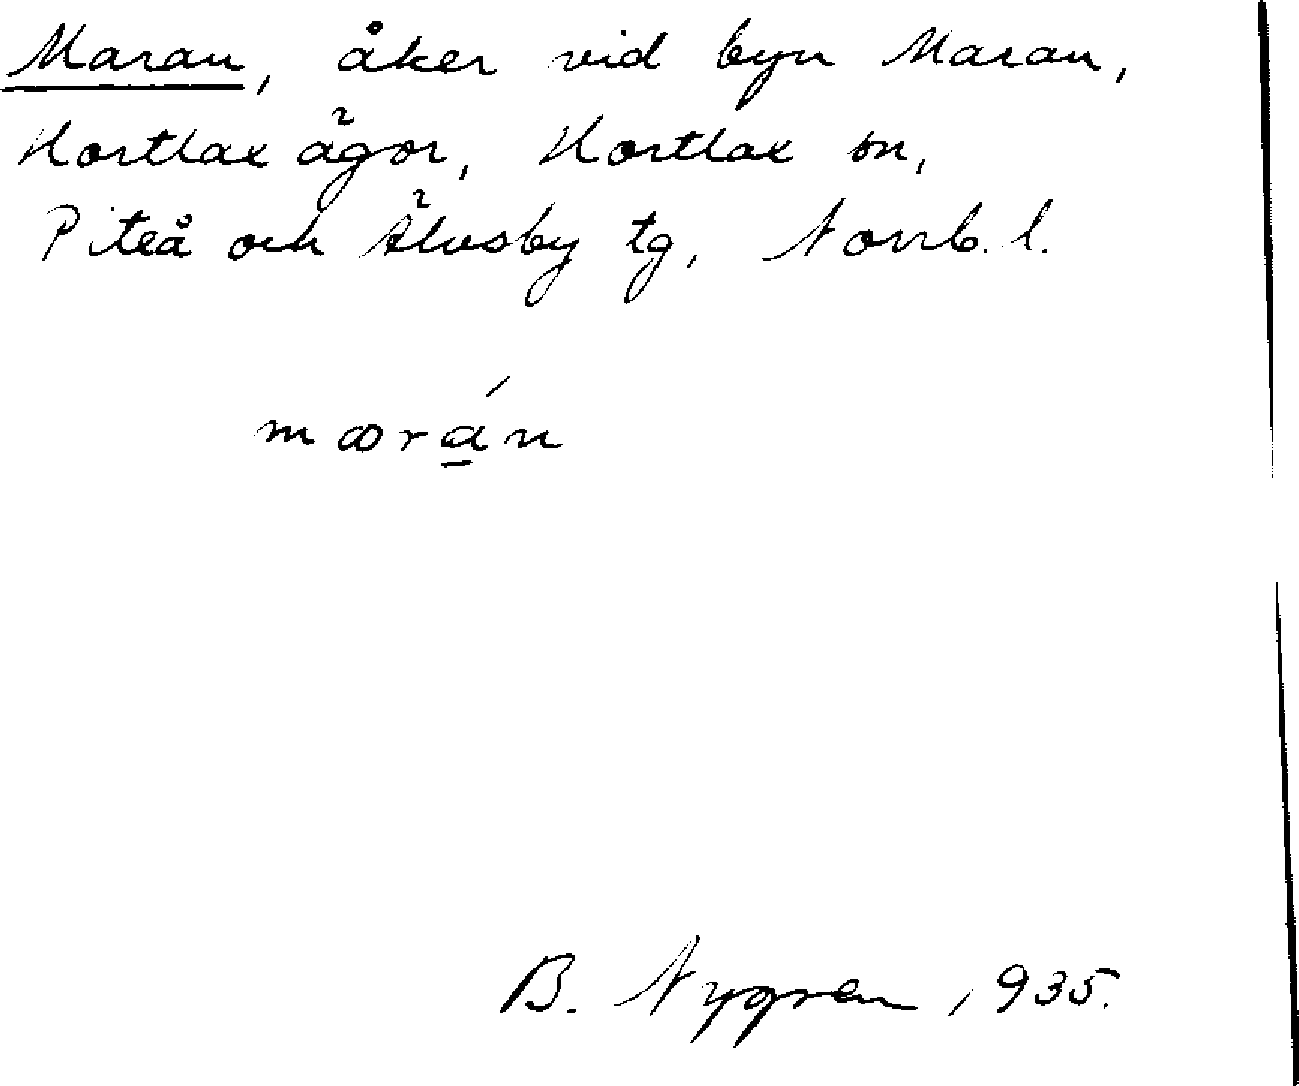 Maran, åker vid byn Maran,
Hortlax ägor, Hortlax sn,
Piteå och Älvsby tg, Norrb. l.
mærán
B. Nygren, 1935.